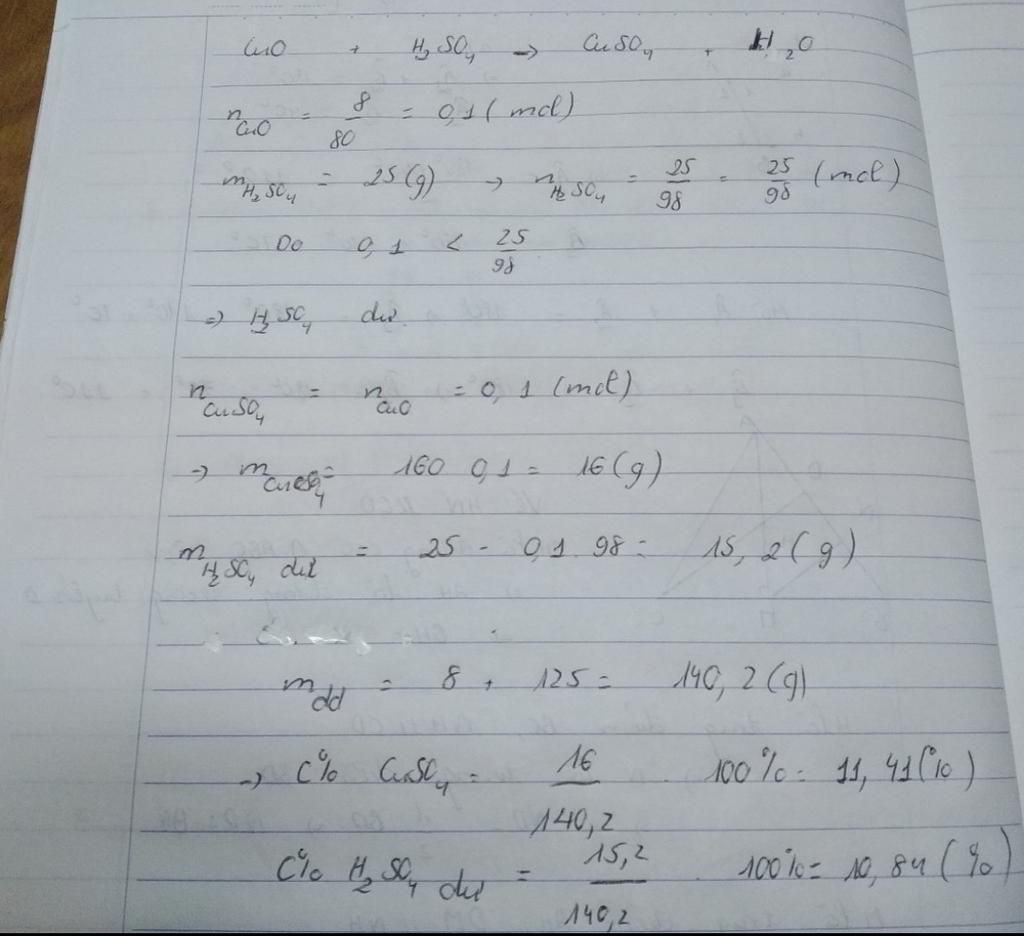 CuO + H₂SO₄ → CuSO₄ + H₂O
n CuO = 8/80 = 0,1 (mol)
m H₂SO₄ = 25(g) → n H₂SO₄ = 25/98 = 25/98 (mol)
Do 0,1 < 25/98
⇒ H₂SO₄ dư.
n CuSO₄ = n CuO = 0,1 (mol)
→ m CuSO₄ = 160 0,1 = 16(g)
m H₂SO₄ dư = 25 - 0,1 . 98 = 15,2(g)
m dd = 8 + 125 = 140,2(g)
→ C% CuSO₄ = 16/140,2 . 100% = 11,41(%)
C% H₂SO₄ dư = 15,2/140,2 . 100% = 10,84(%)